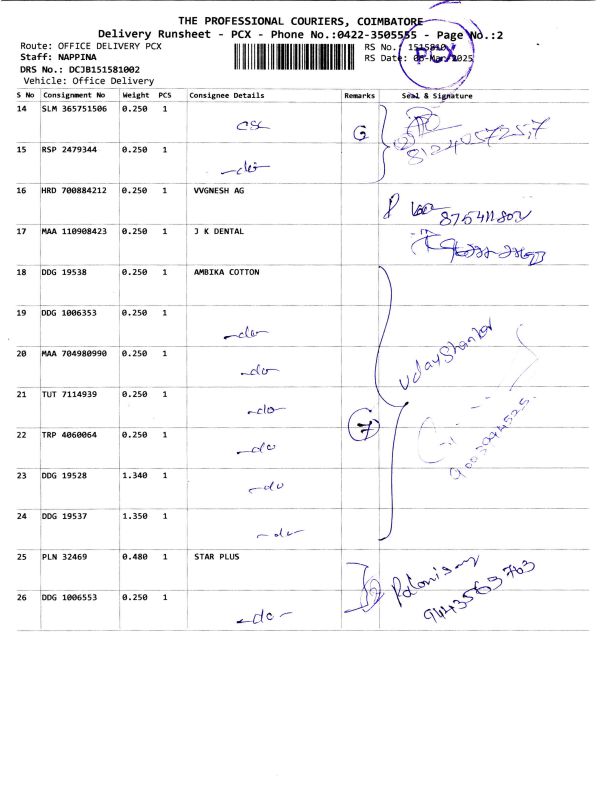 THE PROFESSIONAL COURIERS, COIMBATORE
Delivery Runsheet - PCX - Phone No.:0422-3505555 - Page No.:2
Route: OFFICE DELIVERY PCX
RS No.: 1515810
Staff: NAPPINA
RS Date: 06-Mar-2025
DRS No.: DCJB151581002
Vehicle: Office Delivery
PCX
S No Consignment No Weight PCS Consignee Details Remarks Seal & Signature
14 SLM 365751506 0.250 1
CSC
15 RSP 2479344 0.250 1
-do-
16 HRD 700884212 0.250 1 VVGNESH AG
17 MAA 110908423 0.250 1 J K DENTAL
18 DDG 19538 0.250 1 AMBIKA COTTON
19 DDG 1006353 0.250 1
-do-
20 MAA 704980990 0.250 1
-do-
Uday Shankar
21 TUT 7114939 0.250 1
-do-
7
22 TRP 4060064 0.250 1
-do-
23 DDG 19528 1.340 1
-do
24 DDG 19537 1.350 1
-do-
25 PLN 32469 0.480 1 STAR PLUS
Palanisamy
9443563763
26 DDG 1006553 0.250 1
-do-